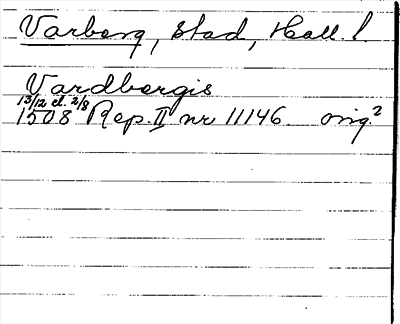 Varberg, stad, Hall. l.
Vardbergis
13/12 el. 2/8
1508 Rep. II nr 11146 orig²